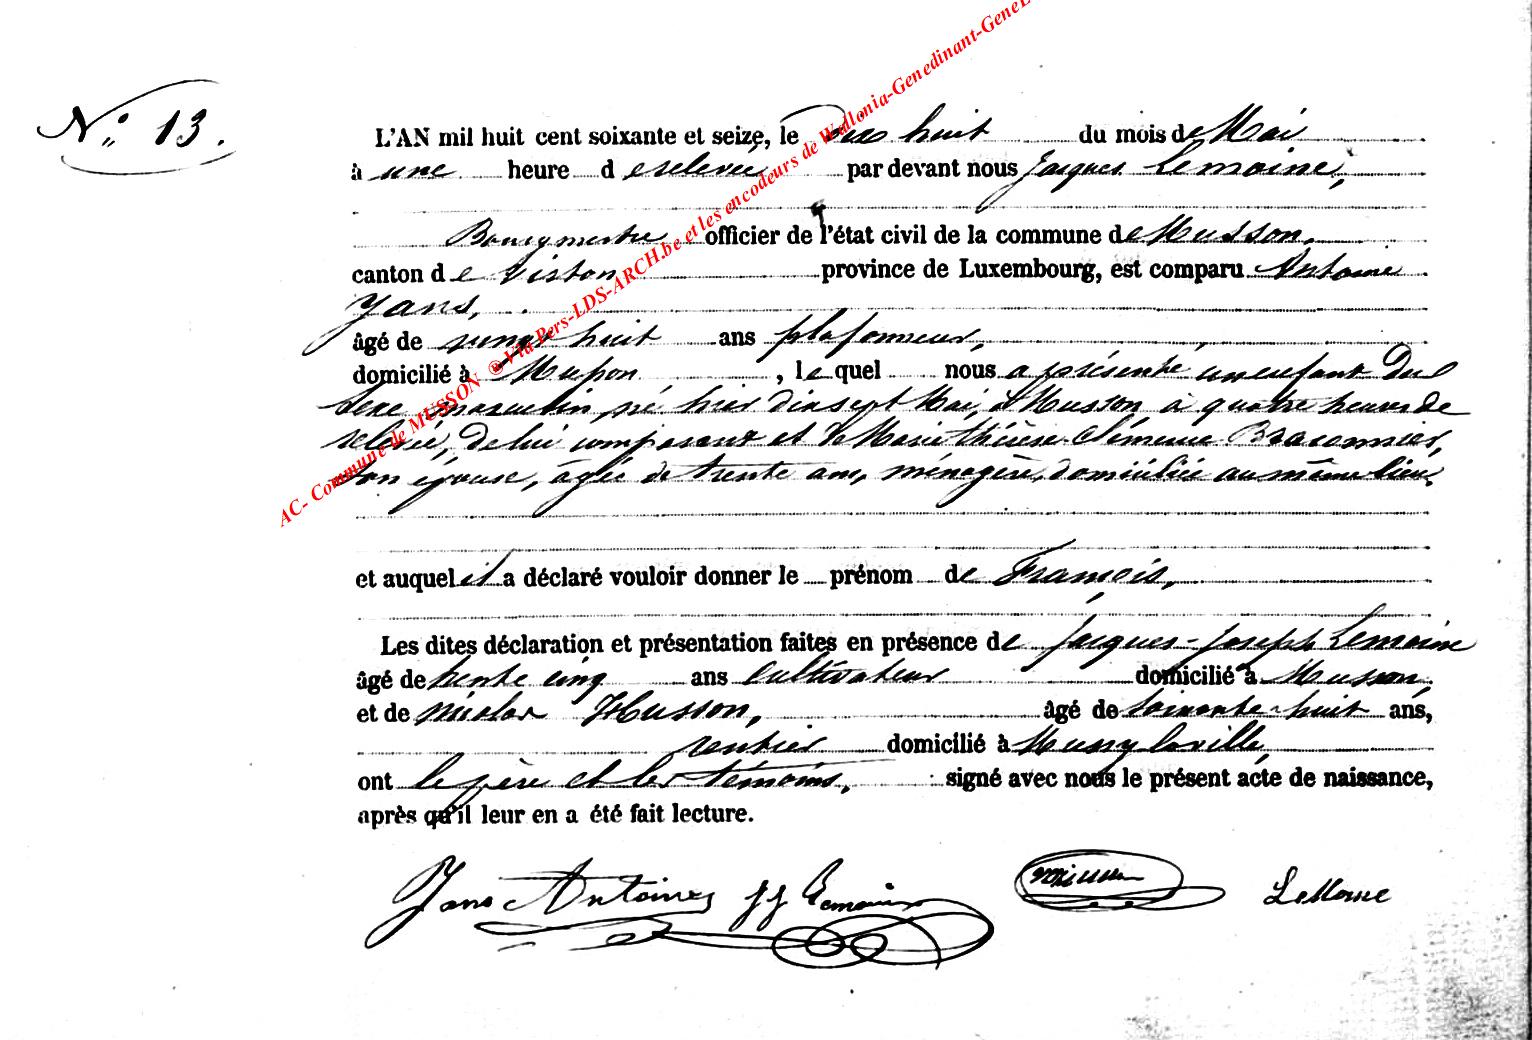 N° 13.
L'AN mil huit cent soixante et seize, le dix huit du mois de Mai
à une heure de relevée, par devant nous Jacques Lemoine,
Bourgmestre officier de l'état civil de la commune de Musson,
canton de Virton province de Luxembourg, est comparu Antoine
Jans,
âgé de vingt huit ans plafonneur,
domicilié à Musson, le quel nous a présenté un enfant du
sexe masculin, né hier dix sept Mai, à Musson à quatre heures de
relevée, de lui comparant et de Marie Thérèse Clémence Braconnier,
son épouse, âgée de trente ans, ménagère, domiciliée au même lieu.
et auquel il a déclaré vouloir donner le prénom de François,
Les dites déclaration et présentation faites en présence de Jacques-Joseph Lemoine
âgé de trente cinq ans cultivateur domicilié à Musson,
et de Nicolas Husson, âgé de soixante-huit ans,
rentier domicilié à Mussy la ville,
ont le père et les témoins, signé avec nous le présent acte de naissance,
après qu'il leur en a été fait lecture.
Jans Antoine JJ Lemoine LeMoine
AC- Commune de MUSSON ® Via Pers-LDS-ARCH.be et les encodeurs de Wallonia-Genedinant-GeneL